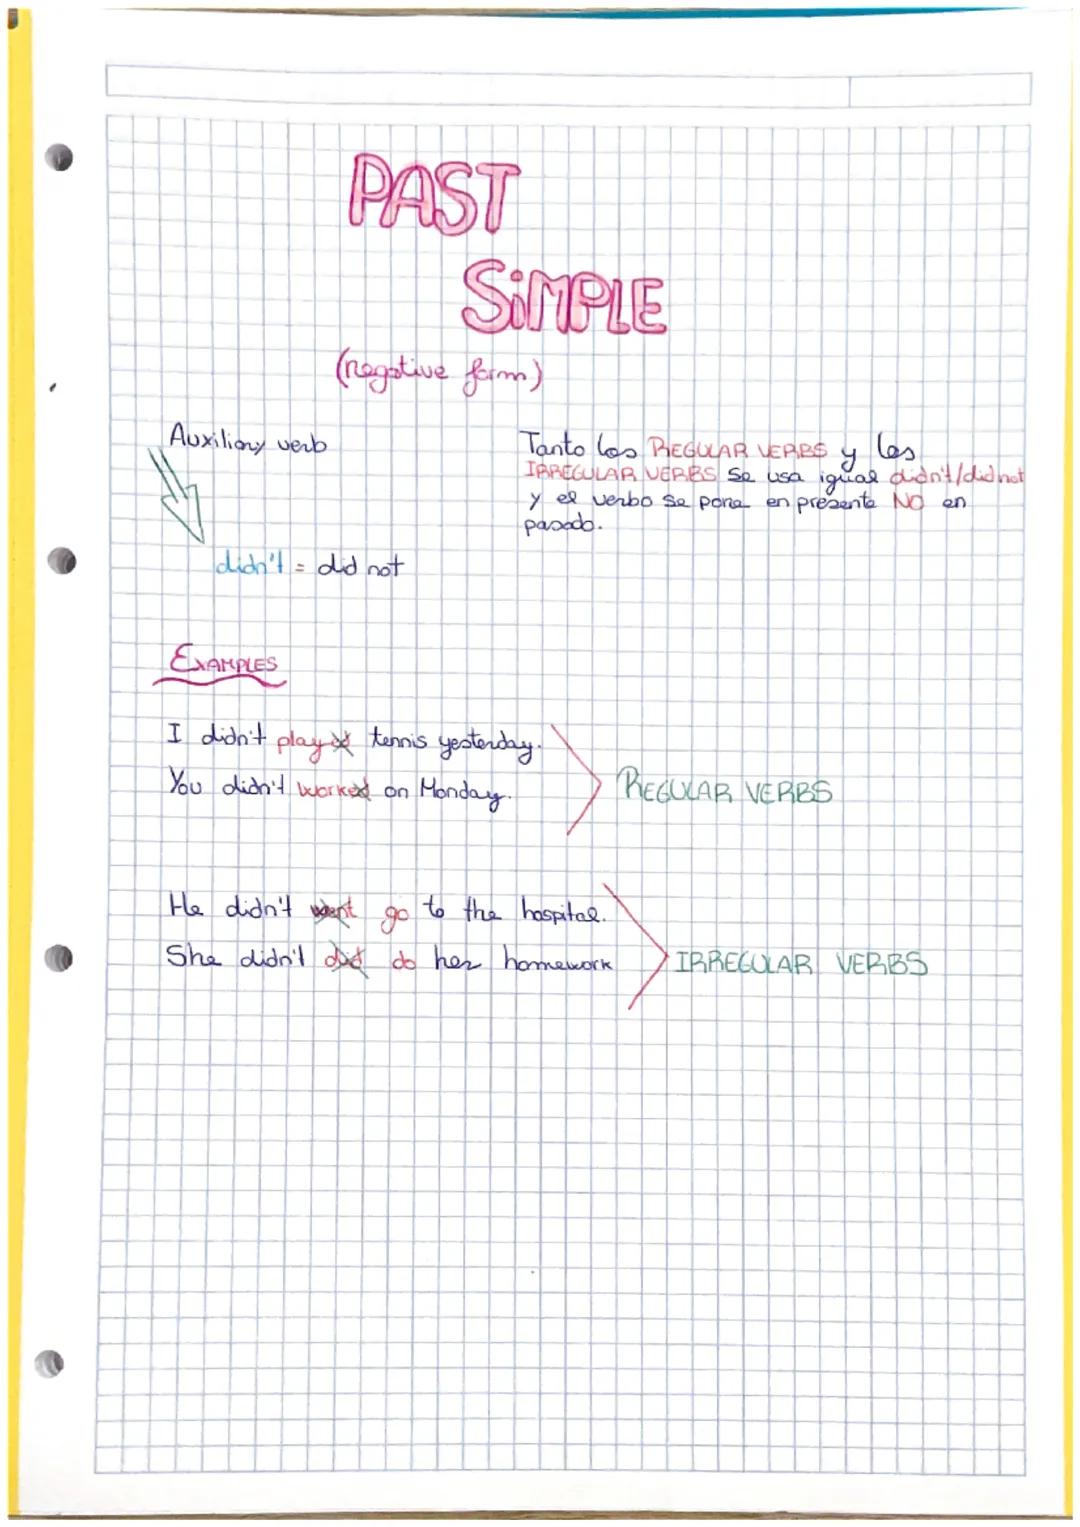 PAST
SiMPLE
(negative form)
Auxiliary verb
didn't = did not
Tanto los REGULAR VERBS y los
IRREGULAR VERBS se usa igual didn't/did not
y el verbo se pone en presente NO en
pasado.
EXAMPLES
I didn't played tennis yesterday.
You didn't worked on Monday.
REGULAR VERBS
He didn't went go to the hospital.
She didn't did do her homework
IRREGULAR VERBS